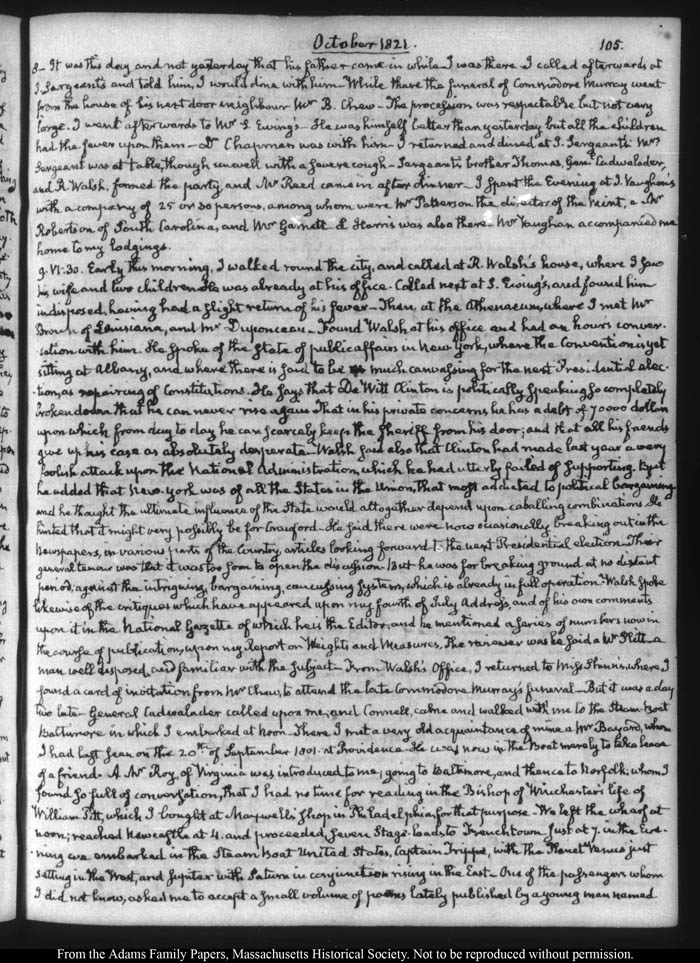 October 1821. 105.
8 - It was this day and not yesterday that his father came in while I was there. I called afterwards at
J. Sergeants and told him, I would dine with him - While there the funeral of Commodore Murray went
from the house of his next door neighbour Mr B. Chew - The procession was respectable but not very
large. I went afterwards to Mr S. Ewings - He was himself better than yesterday but all the children
had the fever upon them - Dr Chapman was with him - I returned and dined at J. Sergeants. Mrs
Sergeant was at table, though unwell with a severe cough - Sergeants brother Thomas, Genl Cadwalader,
and R. Walsh, formed the party, and Mr Reed came in after dinner - I spent the Evening at J. Vaughan's
with a company of 25 or 30 persons, among whom were Mr Patterson the director of the Mint, a Mr
Robertson of South Carolina, and Mr Garnett L Harris was also there. Mr Vaughan accompanied me
home to my lodgings.
9. VI:30. Early this morning, I walked round the city, and called at R. Walsh's house, where I saw
his wife and two children. He was already at his office - Called next at S. Ewing's, and found him
indisposed, having had a slight return of his fever - Then at the Athenaeum, where I met Mr
Brown of Louisiana, and Mr Duponceau - Found Walsh at his office and had an hour's conver-
sation with him. He spoke of the state of public affairs in New York, where the Convention is yet
sitting at Albany, and where there is said to be much canvassing for the next Presidential elec-
tion, as repairing of Constitutions. He says that De Witt Clinton is politically speaking so completely
broken down that he can never rise again. That in his private concerns, he has a debt of 70000 dollars
upon which from day to day he can scarcely keep the Sheriff from his door; and that all his friends
give up his case as absolutely desperate - Walsh said also that Clinton had made last year a very
foolish attack upon the National Administration, which he had utterly failed of supporting. But
he added that New-York was of all the States in the Union, that most addicted to political bargaining
and he thought the ultimate influence of the State would altogether depend upon caballing combinations. He
hinted that it might very possibly be for Crawford - He said there were now occasionally breaking out in the
Newspapers, in various parts of the Country articles looking forward to the next Presidential election - Their
general tenour was that it was too soon to open the discussion. But he was for breaking ground at no distant
period, against the intriguing, bargaining, caucussing system, which is already in full operation. Walsh spoke
likewise of the critiques which have appeared upon my fourth of July Address, and of his own comments
upon it in the National Gazette of which he is the Editor; and he mentioned a series of numbers now in
the course of publication, upon my Report on Weights and Measures. The reviewer was he said a Mr Plitt - a
man well disposed, and familiar with the subject - From Walsh's Office, I returned to Miss where I
found a card of invitation from Mr Chew, to attend the late Commodore Murray's funeral - But it was a day
two late - General Cadwalader called upon me, and Connell, came and walked with me to the Steam-Boat
Baltimore in which I embarked at noon. There I met a very old acquaintance of mine a Mr Bayard, whom
I had last seen on the 20th of September 1801. at Providence. He was now in the Boat merely to take leave
of a friend. A Mr Roy, of Virginia was introduced to me; going to Baltimore, and thence to Norfolk; whom I
found so full of conversation, that I had no time for reading in the Bishop of Winchester's life of
William Pitt, which I bought at Maxwell's shop in Philadelphia, for that purpose. We left the wharf at
noon; reached Newcastle at 4. and proceeded, seven Stage-loads to Frenchtown. Just at 7. in the Eve-
ning we embarked in the Steam Boat United States, Captain Trippe, with the Planet Venus just
setting in the West, and Jupiter with Saturn in conjunction rising in the East - One of the passengers whom
I did not know, asked me to accept a small volume of poems lately published by a young man named
From the Adams Family Papers, Massachusetts Historical Society. Not to be reproduced without permission.